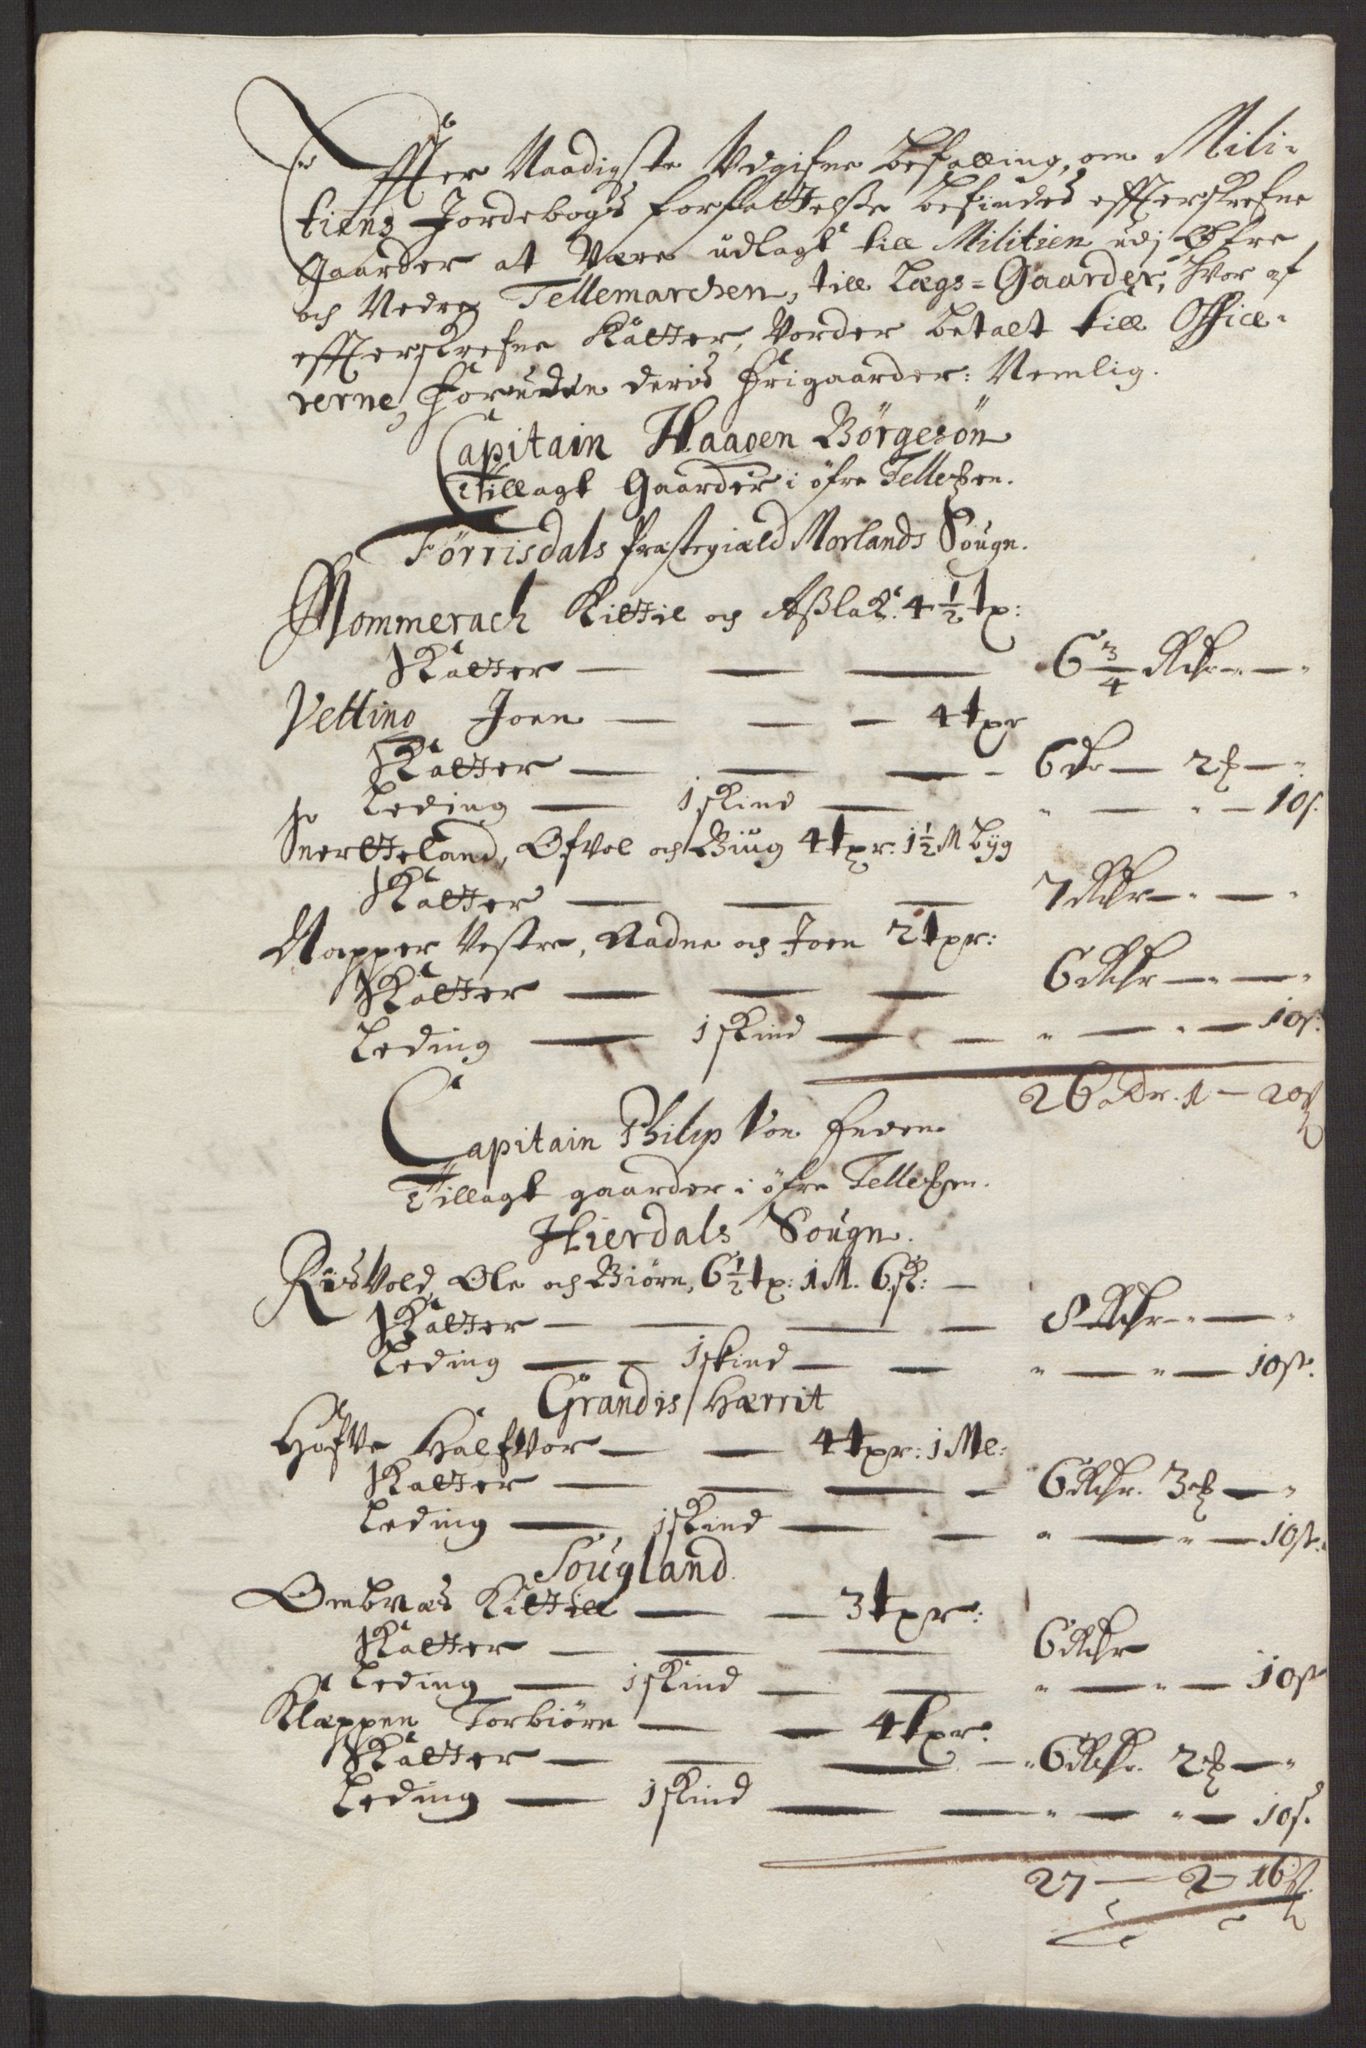 Effter Naadigste Udgifne Befalling, om Mili-
tiens Jordebogs forfattelsse befindes effterskrefne
Gaarder at Være udlagt till Militien udj Øfre
och Nedre Tellemarchen, till Lægs=Gaarder, hvor af
effterskrefne Skatter, Vorder betalt till Offise-
rerne, foruden deris Frigaarder: Nemlig.
Capitain Haagen Börgesön
Tillagt Gaarder i öfre Tellem.
Förrisdals Præstegiæld Morlands Sougn.
Mommerach Kittil och Aßlak: 4 1/2 tp:
Skatter — — — 6 3/4 Rdr — — "
Vetting Joen — — — 4 tpr
Skatter — — — 6 dr — 2 ₰ — "
Leding — 1 skind — " — " — 10 s.
Snertteland, Øfvel och Biug 4 tpr: 1 1/2 M Byg
Skatter — — — 7 Rdr — " — "
Napper Vestre, Aadne och Joen 2 tpr:
Skatter — — — 6 Rdr — " — "
Leding — 1 skind — — " — " — 10 s:
26 Rdr. 1 — 20 s
Capitain Philip Von
Tillagt gaarder i öfre Tellem.
Hierdals Sougn.
Risvold, Ole och Biörn, 6 1/2 tp: 1 M. 6 sk: —
Skatter — — — — 8 Rdr — " — "
Leding — 1 skind — — " — " — 10 s.
Grandis Hærrit
Hofve Halfvor — — 4 tpr: 1 Ml:
Skatter — — — — 6 Rdr. 3 ₰ — "
Leding — 1 skind — — " — " — 10 s.
Sougland
Ombnæs Kittill — — 3 tpr:
Skatter — — — 6 Rdr
Leding — 1 skind — — " — " — 10 s
Klæppen Torbiörn — — 4 tpr.
Skatter — — — — " 6 Rdr. 2 ₰ — "
Leding — 1 skind — — " — " — 10 s.
27 — 2 — 16 s.